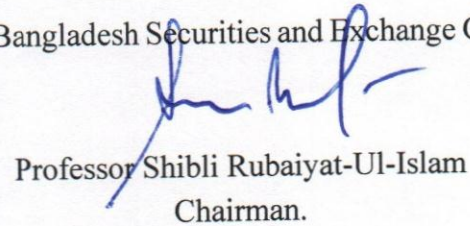 Bangladesh Securities and Exchange C
Professor Shibli Rubaiyat-Ul-Islam
Chairman.